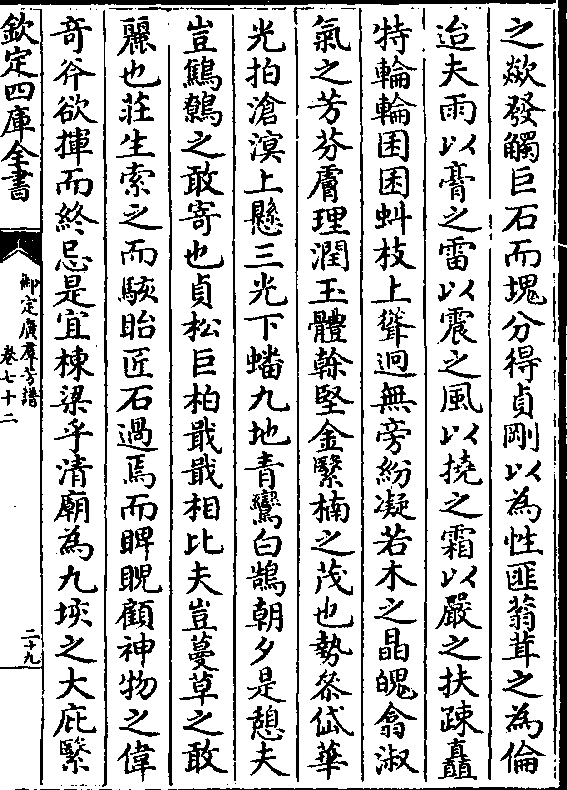 之歘發觸巨石而塊分得貞剛以為性匪蓊茸之為倫
迨夫雨以膏之雷以震之風以撓之霜以嚴之扶疎矗
特輪輪囷囷虯枝上聳迥無旁紛凝若木之晶魄翕淑
氣之芳芬膚理潤玉體榦堅金繄楠之茂也勢叅岱華
光拍滄溟上懸三光下蟠九地青鸞白鵠朝夕是憩夫
豈鷦鷯之敢寄也貞松巨柏戢戢相比夫豈蔓草之敢
麗也莊生索之而駭眙匠石過焉而睥睨顧神物之偉
竒斧欲揮而終忌是宜棟梁乎清廟為九垓之大庇繄
欽定四庫全書
御定廣羣芳譜
卷七十二
二十九